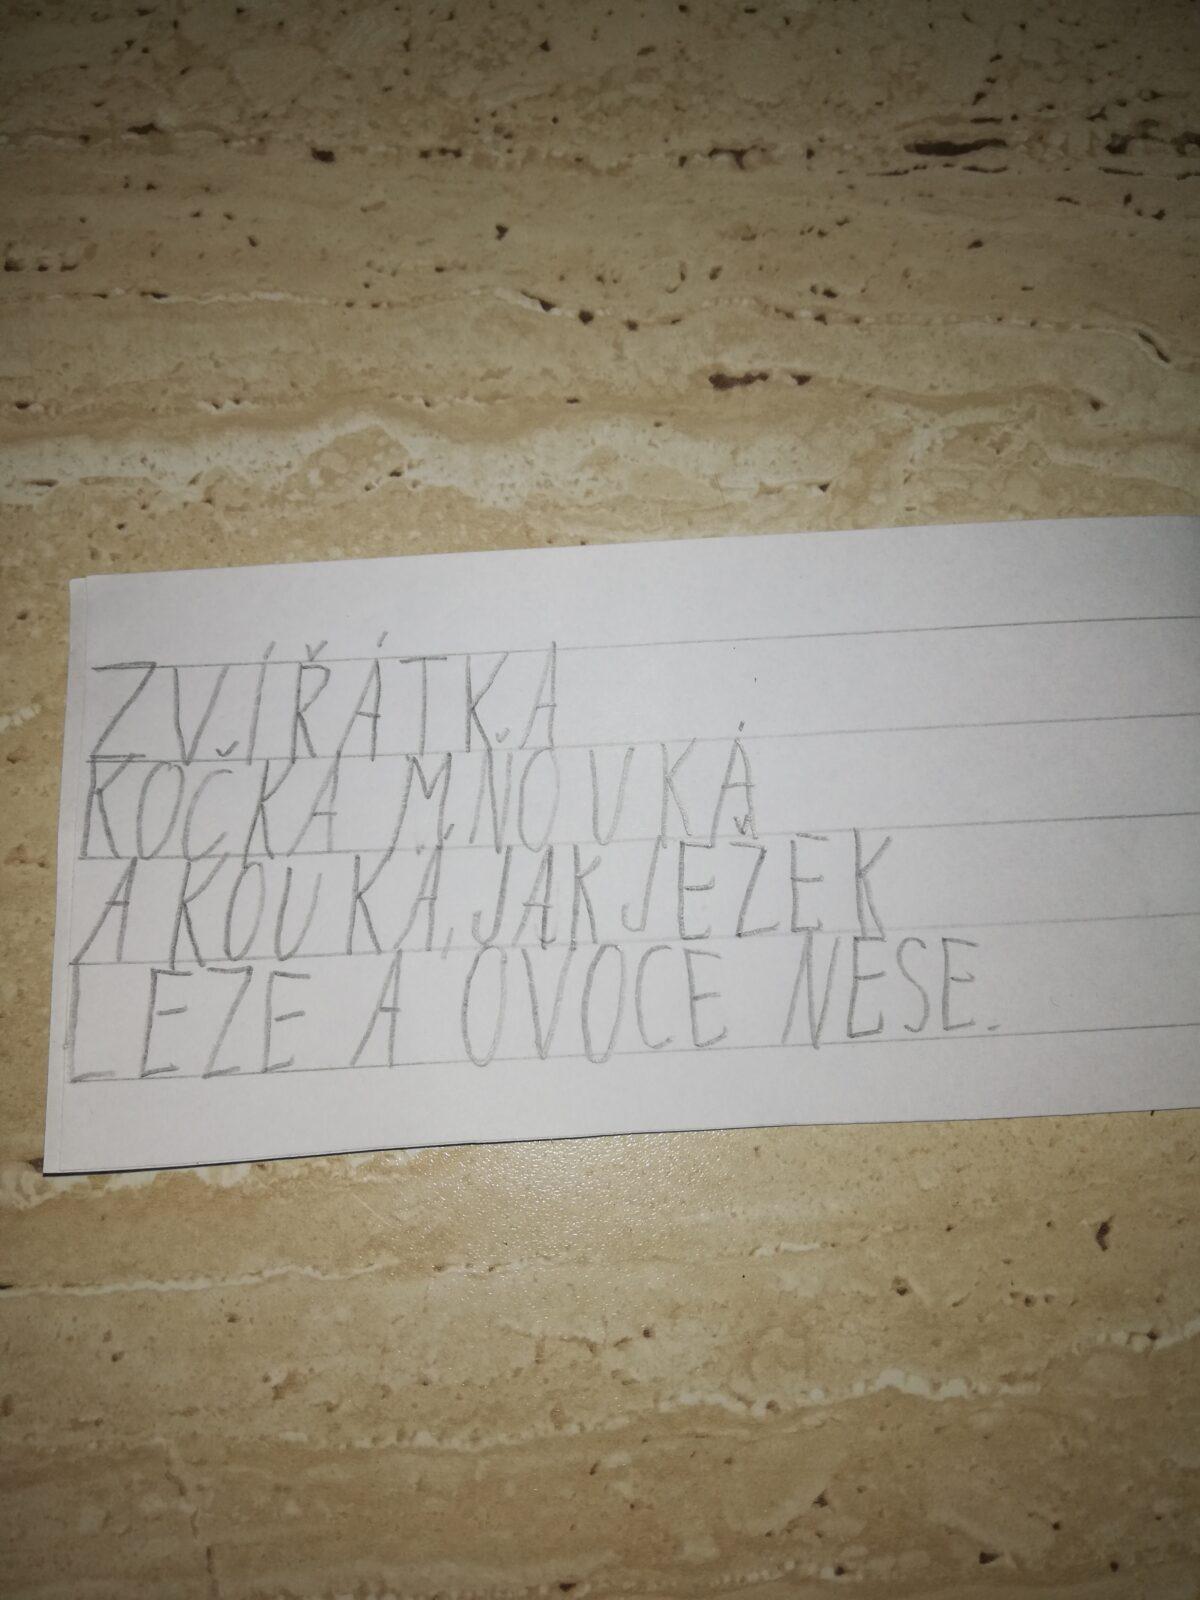 ZVÍŘÁTKA
KOČKA MŇOUKÁ
A KOUKÁ, JAK JEŽEK
LEZE A OVOCE NESE.